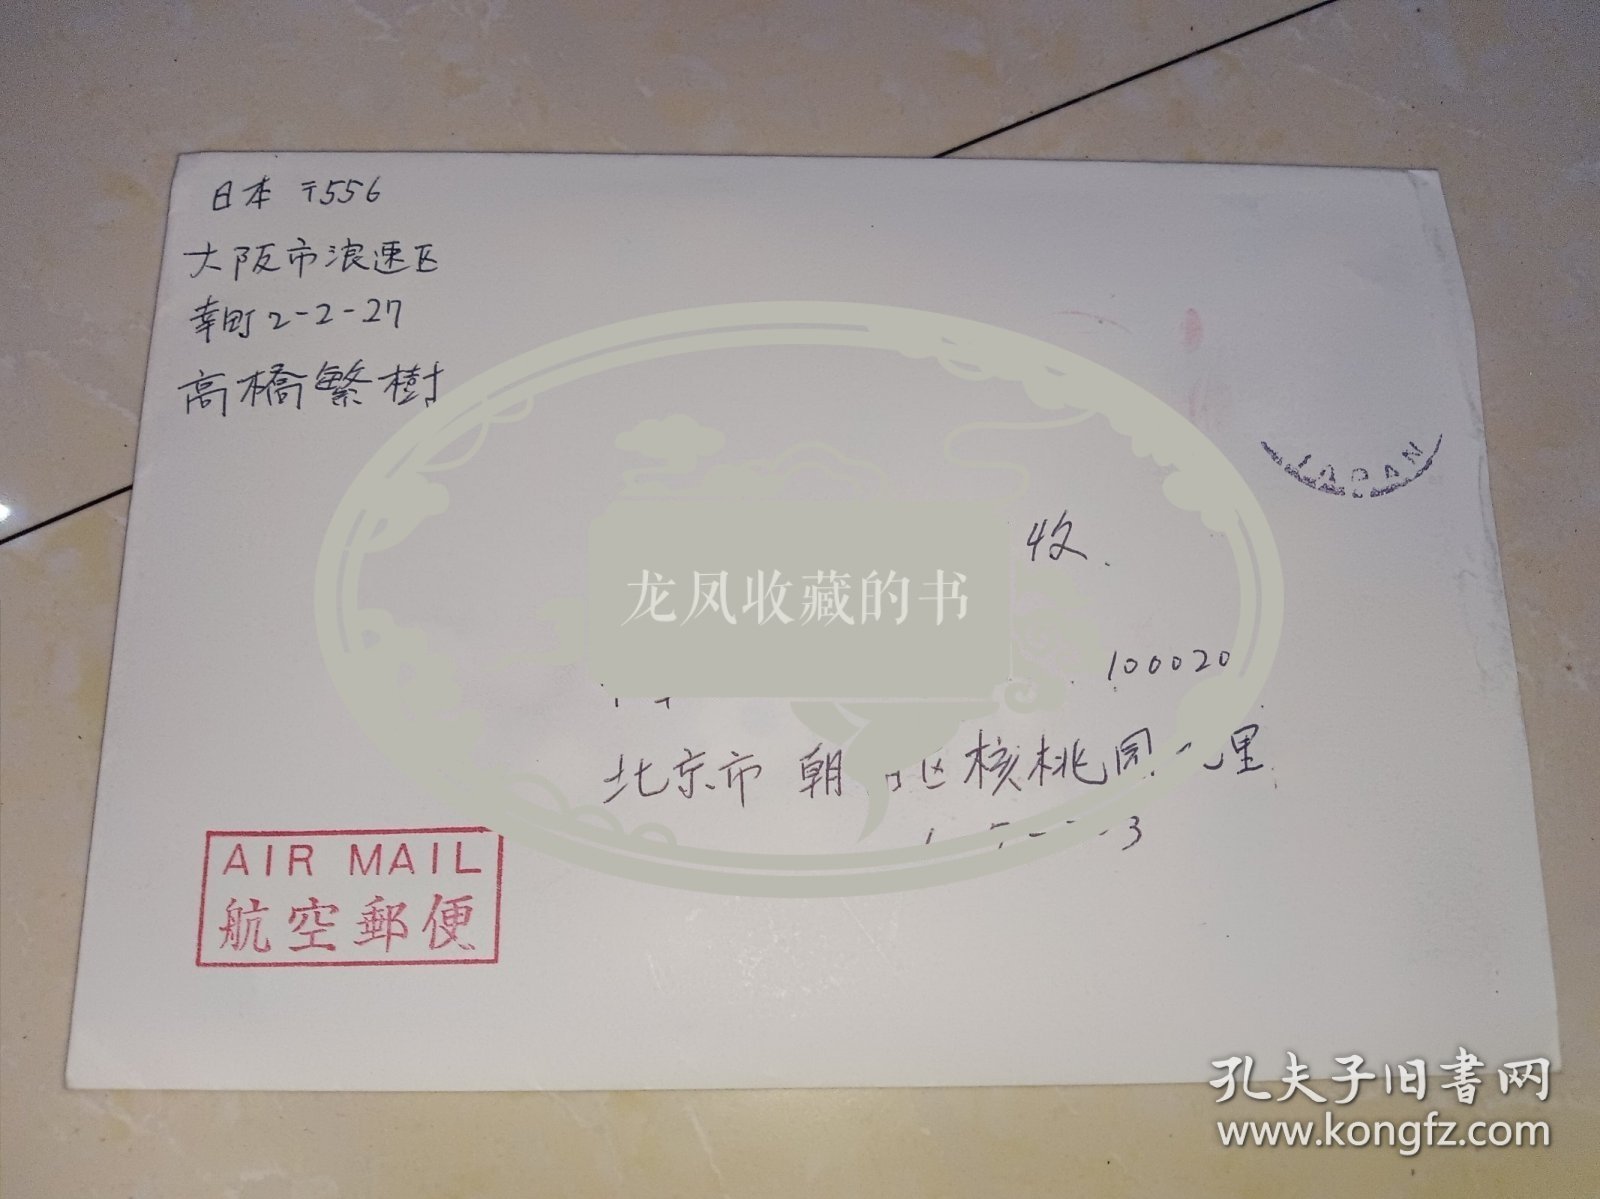 日本 〒556
大阪市浪速区
幸町2-2-27
高橋繁樹
JAPAN
收
龙凤收藏的书
100020
北京市 朝 区核桃园 里
3
AIR MAIL
航空郵便
孔夫子旧书网
www.kongfz.com